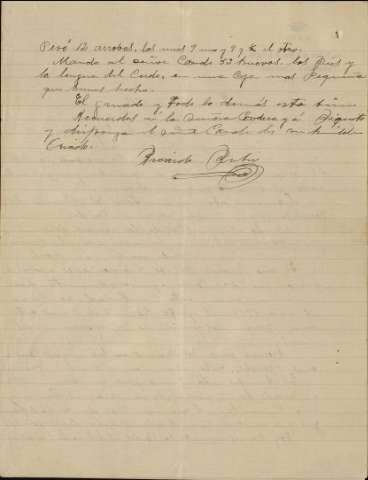 Pesó 12 arrobas, los unos 9 uno y 9 y ½ el otro.
Mando al señor Conde 33 huevos, los pies y
la lengua del Cerdo, en una caja mas pequeña
que emos hecho.
El ganado y todo lo demás está bien
Recuerdos a la Señora Condesa y á
y disponga el Conde de su
Criado.
Ricardo